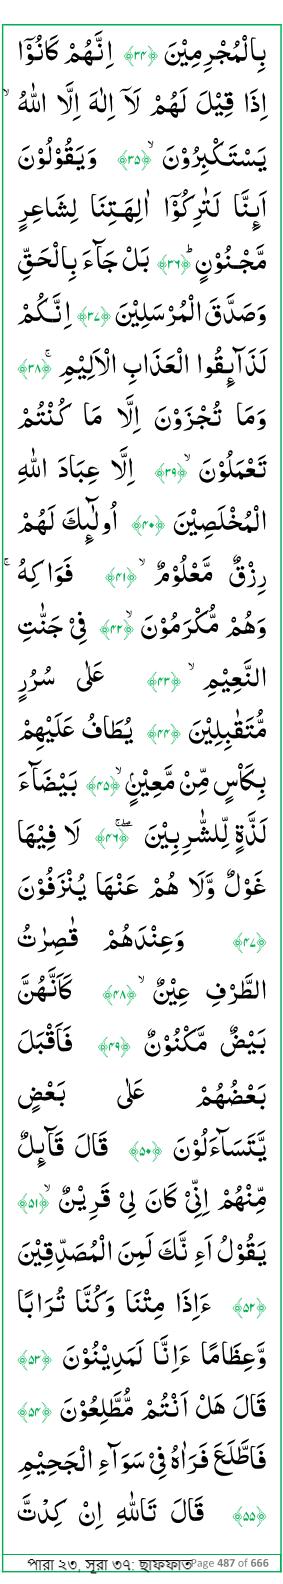 بِالْمُجْرِمِيْنَ ﴿۳۴﴾ اِنَّهُمْ كَانُوْۤا
اِذَا قِيْلَ لَهُمْ لَاۤ اِلٰهَ اِلَّا اللّٰهُ ۙ
يَسْتَكْبِرُوْنَ ۙ﴿۳۵﴾ وَيَقُوْلُوْنَ
اَىِٕنَّا لَتَارِكُوْۤا اٰلِهَتِنَا لِشَاعِرٍ
مَّجْنُوْنٍ ؕ﴿۳۶﴾ بَلْ جَآءَ بِالْحَقِّ
وَصَدَّقَ الْمُرْسَلِيْنَ ﴿۳۷﴾ اِنَّكُمْ
لَذَآىِٕقُوا الْعَذَابِ الْاَلِيْمِ ۚ﴿۳۸﴾
وَمَا تُجْزَوْنَ اِلَّا مَا كُنْتُمْ
تَعْمَلُوْنَ ۙ﴿۳۹﴾ اِلَّا عِبَادَ اللّٰهِ
الْمُخْلَصِيْنَ ﴿۴۰﴾ اُولٰٓىِٕكَ لَهُمْ
رِزْقٌ مَّعْلُوْمٌ ۙ﴿۴۱﴾ فَوَاكِهُ ۚ
وَهُمْ مُّكْرَمُوْنَ ۙ﴿۴۲﴾ فِيْ جَنّٰتِ
النَّعِيْمِ ۙ﴿۴۳﴾ عَلٰى سُرُرٍ
مُّتَقٰبِلِيْنَ ﴿۴۴﴾ يُطَافُ عَلَيْهِمْ
بِكَاْسٍ مِّنْ مَّعِيْنٍۭ ۙ﴿۴۵﴾ بَيْضَآءَ
لَذَّةٍ لِّلشّٰرِبِيْنَ ۖۚ﴿۴۶﴾ لَا فِيْهَا
غَوْلٌ وَّلَا هُمْ عَنْهَا يُنْزَفُوْنَ
﴿۴۷﴾ وَعِنْدَهُمْ قٰصِرٰتُ
الطَّرْفِ عِيْنٌ ۙ﴿۴۸﴾ كَاَنَّهُنَّ
بَيْضٌ مَّكْنُوْنٌ ﴿۴۹﴾ فَاَقْبَلَ
بَعْضُهُمْ عَلٰى بَعْضٍ
يَّتَسَآءَلُوْنَ ﴿۵۰﴾ قَالَ قَآىِٕلٌ
مِّنْهُمْ اِنِّيْ كَانَ لِيْ قَرِيْنٌ ۙ﴿۵۱﴾
يَقُوْلُ اَءِ نَّكَ لَمِنَ الْمُصَدِّقِيْنَ
﴿۵۲﴾ ءَاِذَا مِتْنَا وَكُنَّا تُرَابًا
وَّعِظَامًا ءَاِنَّا لَمَدِيْنُوْنَ ﴿۵۳﴾
قَالَ هَلْ اَنْتُمْ مُّطَّلِعُوْنَ ﴿۵۴﴾
فَاطَّلَعَ فَرَاٰهُ فِيْ سَوَآءِ الْجَحِيْمِ
﴿۵۵﴾ قَالَ تَاللّٰهِ اِنْ كِدْتَّ
পারা ২৩, সূরা ৩৭: ছাফফাত Page 487 of 666